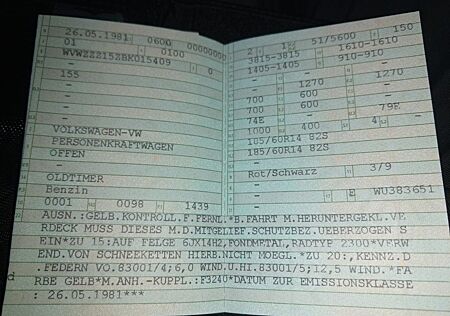 26.05.1981 0600 00000000
01 0100
WVWZZZ15ZBK015409 0
155 -
-
-
-
VOLKSWAGEN-VW
PERSONENKRAFTWAGEN
OFFEN
-
OLDTIMER
Benzin
0001 0098 1439
2 1 51/5600 150
3815-3815 1610-1610
1405-1405 910-910
- - -
- 1270 - 1270
700 600 - -
700 600 - -
74E - 79E
1000 400 4 -
185/60R14 82S
185/60R14 82S
-
Rot/Schwarz 3/9
-
- E WU383651
AUSN.:GELB.KONTROLL.F.FERNL.*B.FAHRT M.HERUNTERGEKL.VE
RDECK MUSS DIESES M.D.MITGELIEF.SCHUTZBEZ.UEBERZOGEN S
EIN*ZU 15:AUF FELGE 6JX14H2,FONDMETAL,RADTYP 2300*VERW
END.VON SCHNEEKETTEN HIERB.NICHT MOEGL.*ZU 20:,KENNZ.D
.FEDERN VO.83001/4;6,0 WIND.U.HI.83001/5;12,5 WIND.*FA
RBE GELB*M.ANH.-KUPPL.:F3240*DATUM ZUR EMISSIONSKLASSE
: 26.05.1981***